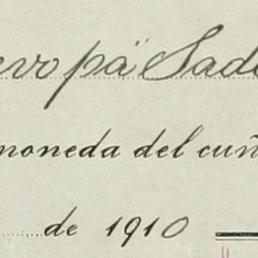 evo pä Sad
moneda del cuñ
de 1910